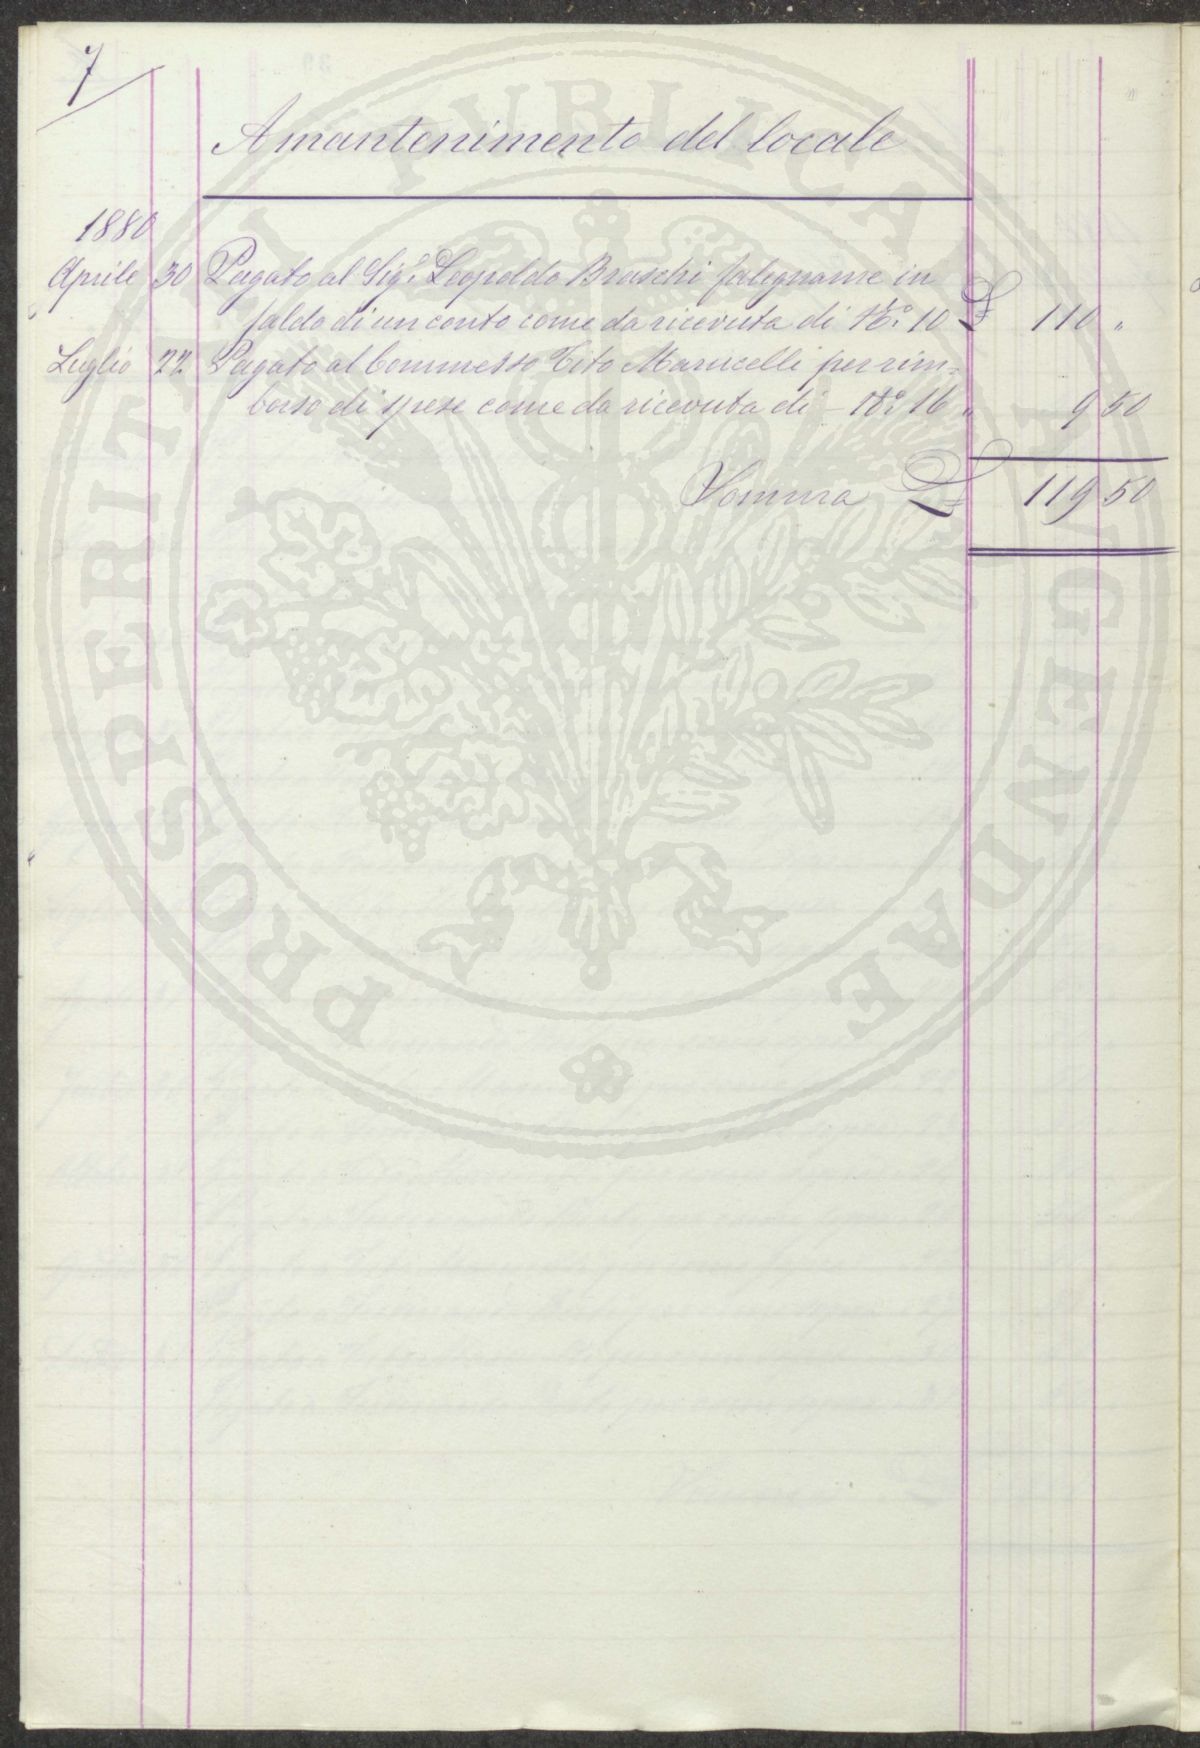 7
A mantenimento del locale
1880
Aprile 30 Pagato al Sig.r Leopoldo Braschi falegname in
saldo di un conto come da ricevuta di N.o 10 £ 110 "
Luglio 22 Pagato al Commesso Tito Marucelli per rim=
borso di spese come da ricevuta di - N.o 16 " 9 50
Somma £ 119 50
PROSPERITATI PVBLICAE AVGENDAE